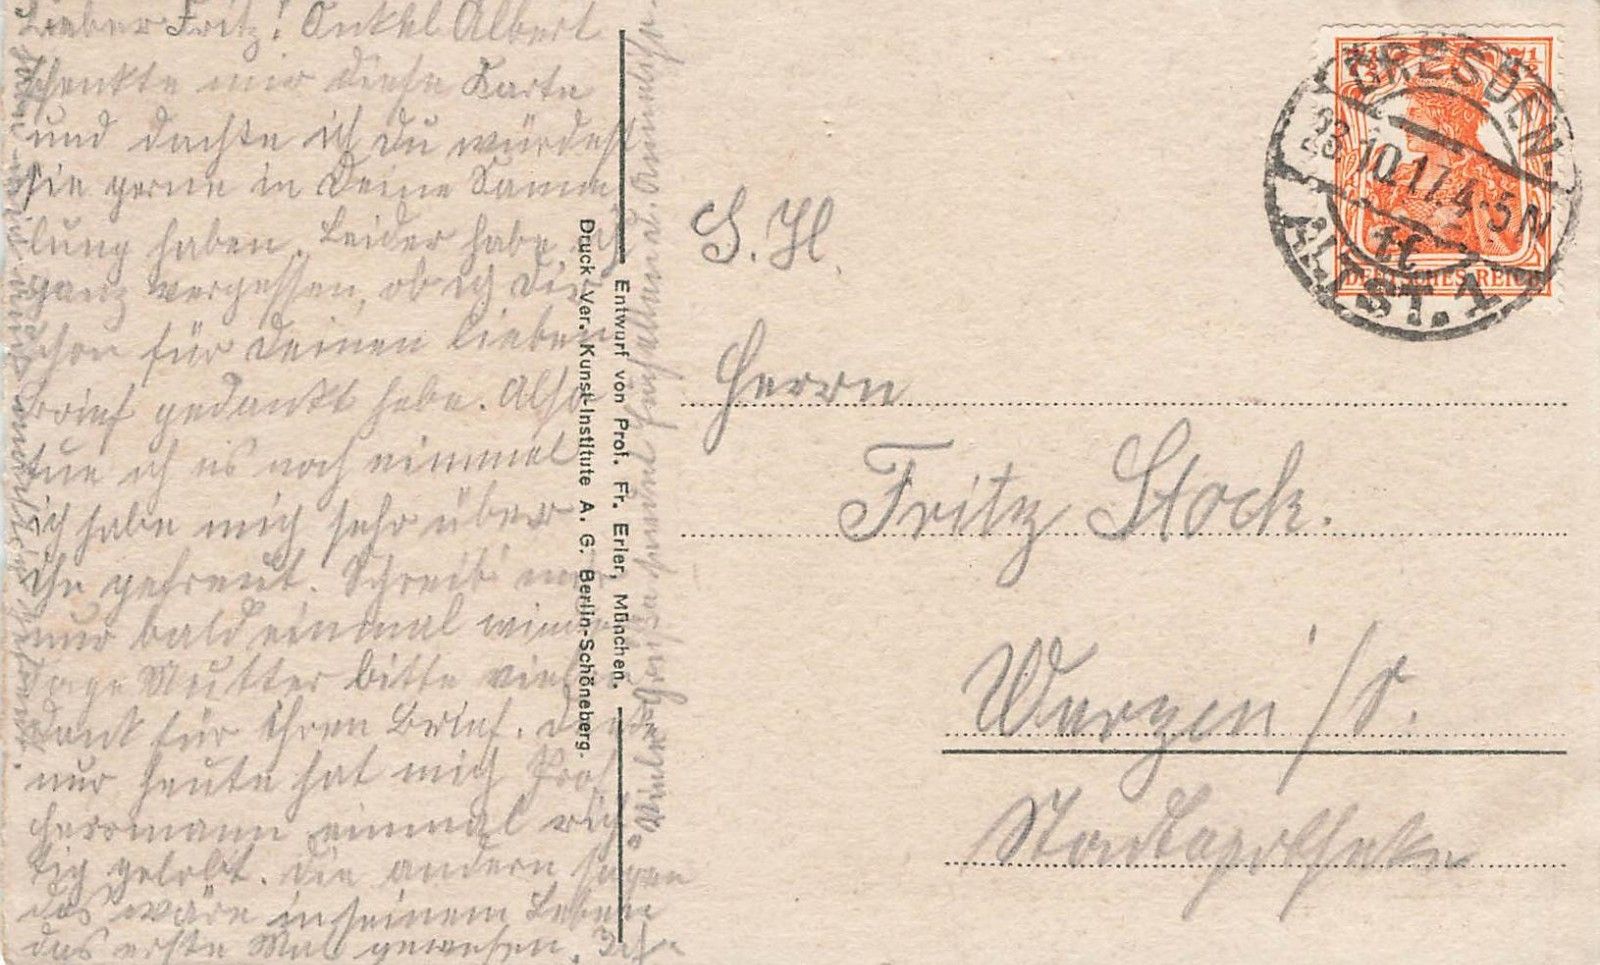 Lieber Fritz! Onkel Albert
schenkte mir diese Karte
und dachte ich du würdest
sie gerne in Deine Samm-
lung haben. Leider habe ich
ganz vergessen, ob ich Dir
schon für Deinen lieben
Brief gedankt habe. Also
tue ich es noch einmal
ich habe mich sehr über
ihn gefreut. Schreib mir
nur bald einmal wieder
sage Mutter bitte vielen
Dank für ihren Brief. Denk
nur heute hat mich Prof
Herrmann einmal rich-
tig gelobt. Die andern sagen
das wäre in seinem Leben
das erste Mal gewesen. Ich
Entwurf von Prof. Fr. Erler, München.
Druck Ver. Kunst-Institute A. G. Berlin-Schöneberg.
S. H.
Herrn
Fritz Stock.
Wurzen / S.
Stadtapotheke
DRESDEN
23.10.17. 4-5 N
ALTST. 1
DEUTSCHES REICH
7½